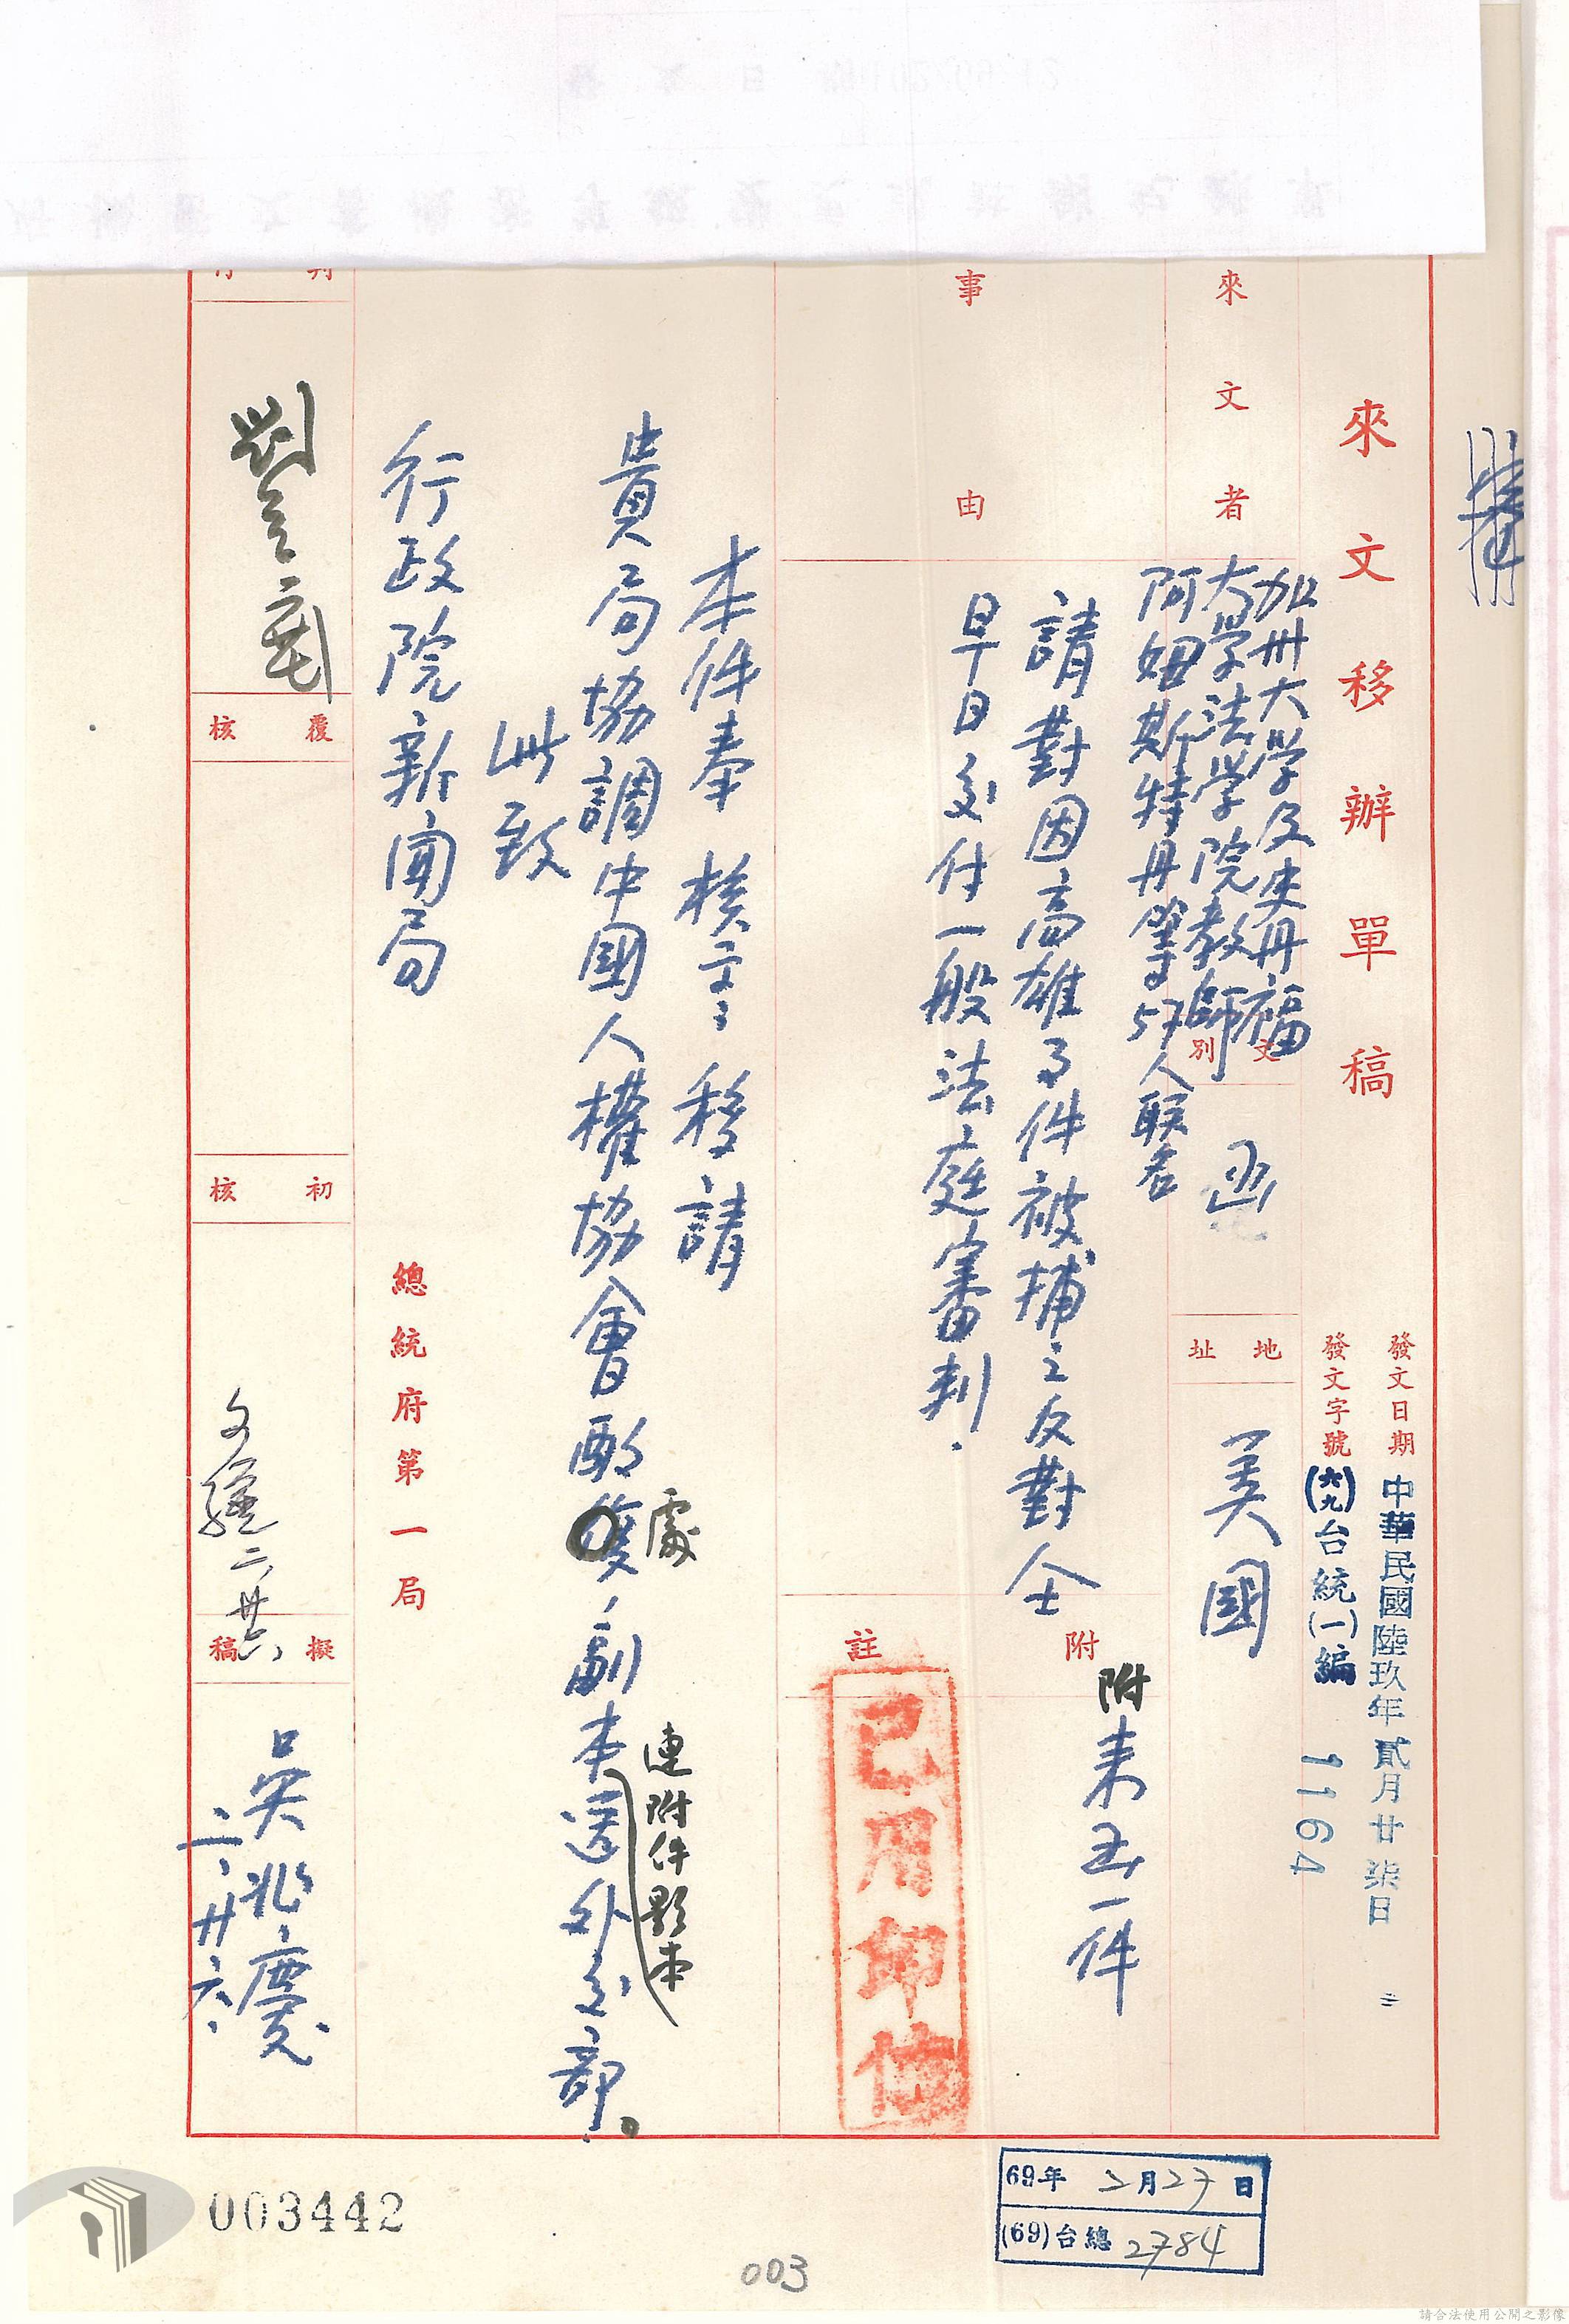 來文移辦單稿
發文日期 中華民國陸玖年貳月廿柒日
發文字號 (六九)台統(一)編 1164
來文者
加州大學及史丹福
大學法學院教師
阿姆斯特丹等57人联名
文別
函
地址
美國
事由
請對因高雄事件被捕之反對人士
早日交付一般法庭審判.
附註
附来函一件
已用印信
本件奉 核示:移請
貴局協調中國人權協會酌處,副本(連附件影本)送外交部。
此致
行政院新聞局
總統府第一局
判行
覆核
初核
二、廿六
擬稿
吳兆慶
二、廿六、
69年 2月27日
(69)台總 2784
003442
003
請合法使用公開之影像